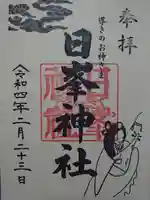 奉拝
導きのお神さま
日峯神社
令和四年二月二十三日